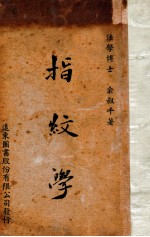 醫學博士 俞叔平著
指紋學
遠東圖書股份有限公司發行